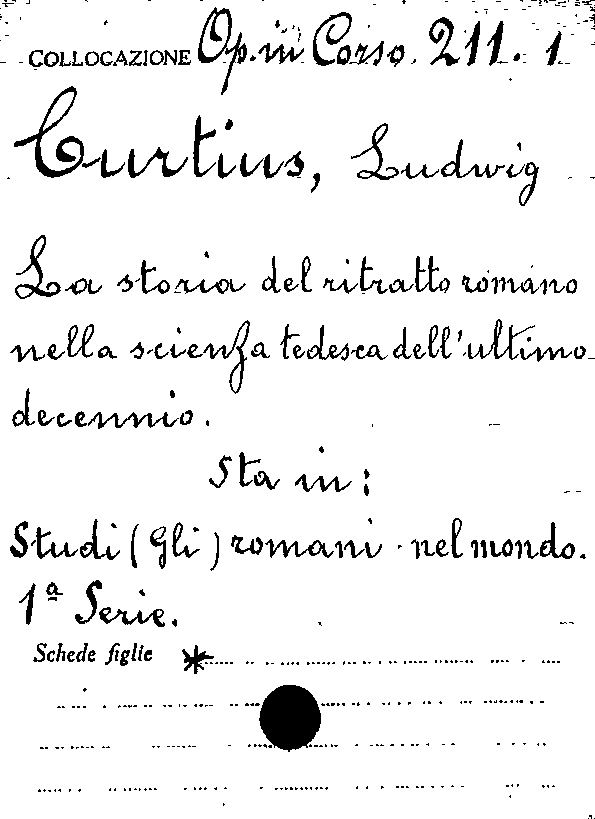 COLLOCAZIONE Op. in Corso. 211. 1
Curtius, Ludwig
La storia del ritratto romano
nella scienza tedesca dell'ultimo
decennio.
Sta in:
Studi (Gli) romani nel mondo.
1ª Serie.
Schede figlie *